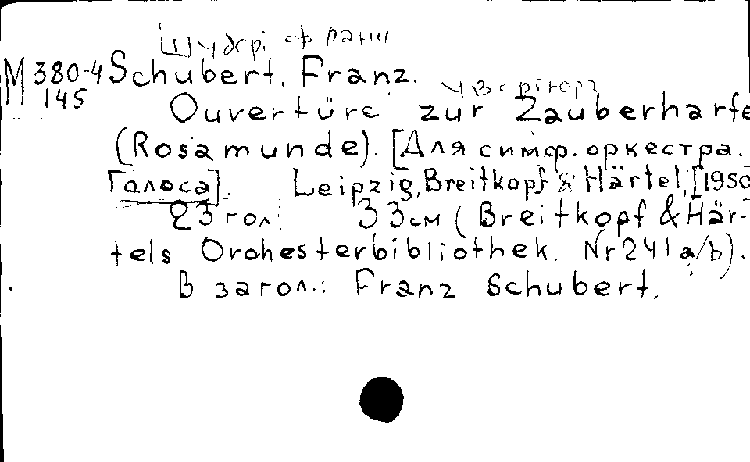 M 380-4 Schubert, Franz.
145
Ouvertüre zur Zauberharfe
(Rosamunde). [Для симф. оркестра.
Голоса]. Leipzig, Breitkopf & Härtel, [1950
23 гол. 33 см (Breitkopf & Här-
tels Orchesterbibliothek. Nr 241 a/b).
В загол.: Franz Schubert.